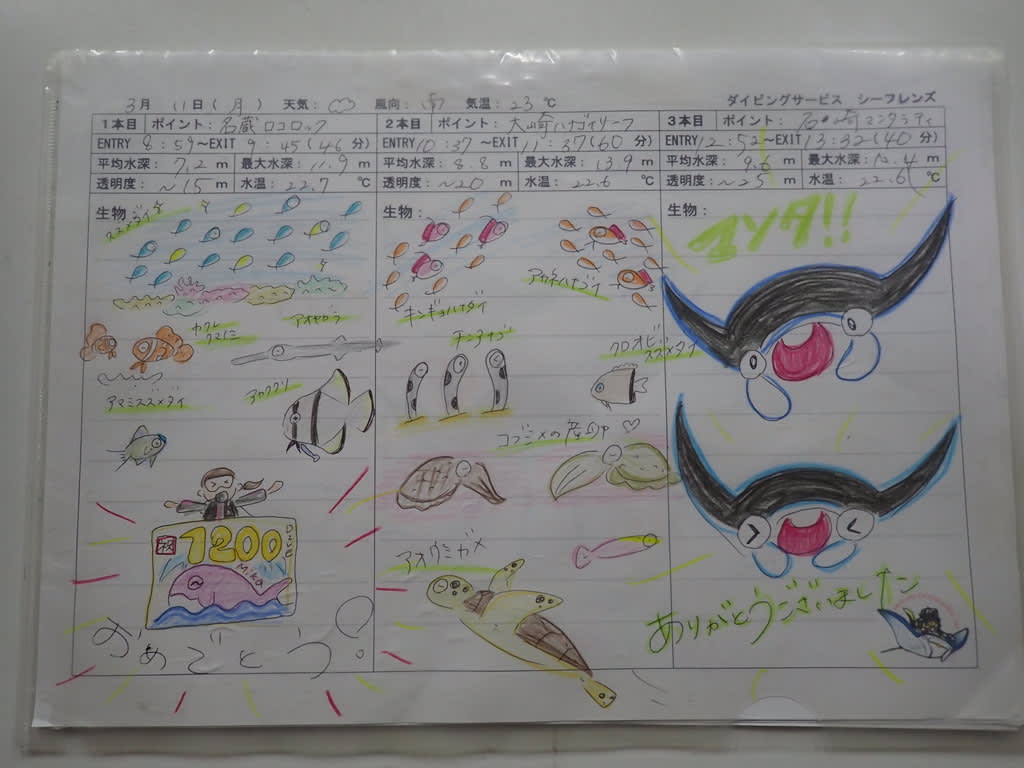 3月 11日(月) 天気: 風向: 南 気温: 23 ℃
ダイビングサービス シーフレンズ
1本目 ポイント: 名蔵ロコロック
ENTRY 8:59~EXIT 9:45(46分)
平均水深: 7.2 m 最大水深: 11.9 m
透明度: ~15 m 水温: 22.7 ℃
生物:
スズメダイ
カクレクマノミ
アオヤガラ
アマミスズメダイ
祝
1200
DIVE
Mika
おめでとう!
2本目 ポイント: 大崎ハナゴイリーフ
ENTRY 10:37~EXIT 11:37(60分)
平均水深: 8.8 m 最大水深: 13.9 m
透明度: ~20 m 水温: 22.6 ℃
生物:
キンギョハナダイ
アカネハナゴイ
チンアナゴ
クロオビスズメダイ
コブシメの産卵♡
アオウミガメ
3本目 ポイント: 石崎マンタシティ
ENTRY 12:52~EXIT 13:32(40分)
平均水深: 9.6 m 最大水深: 12.4 m
透明度: ~25 m 水温: 22.6 ℃
生物:
マンタ!!
ありがとうございました